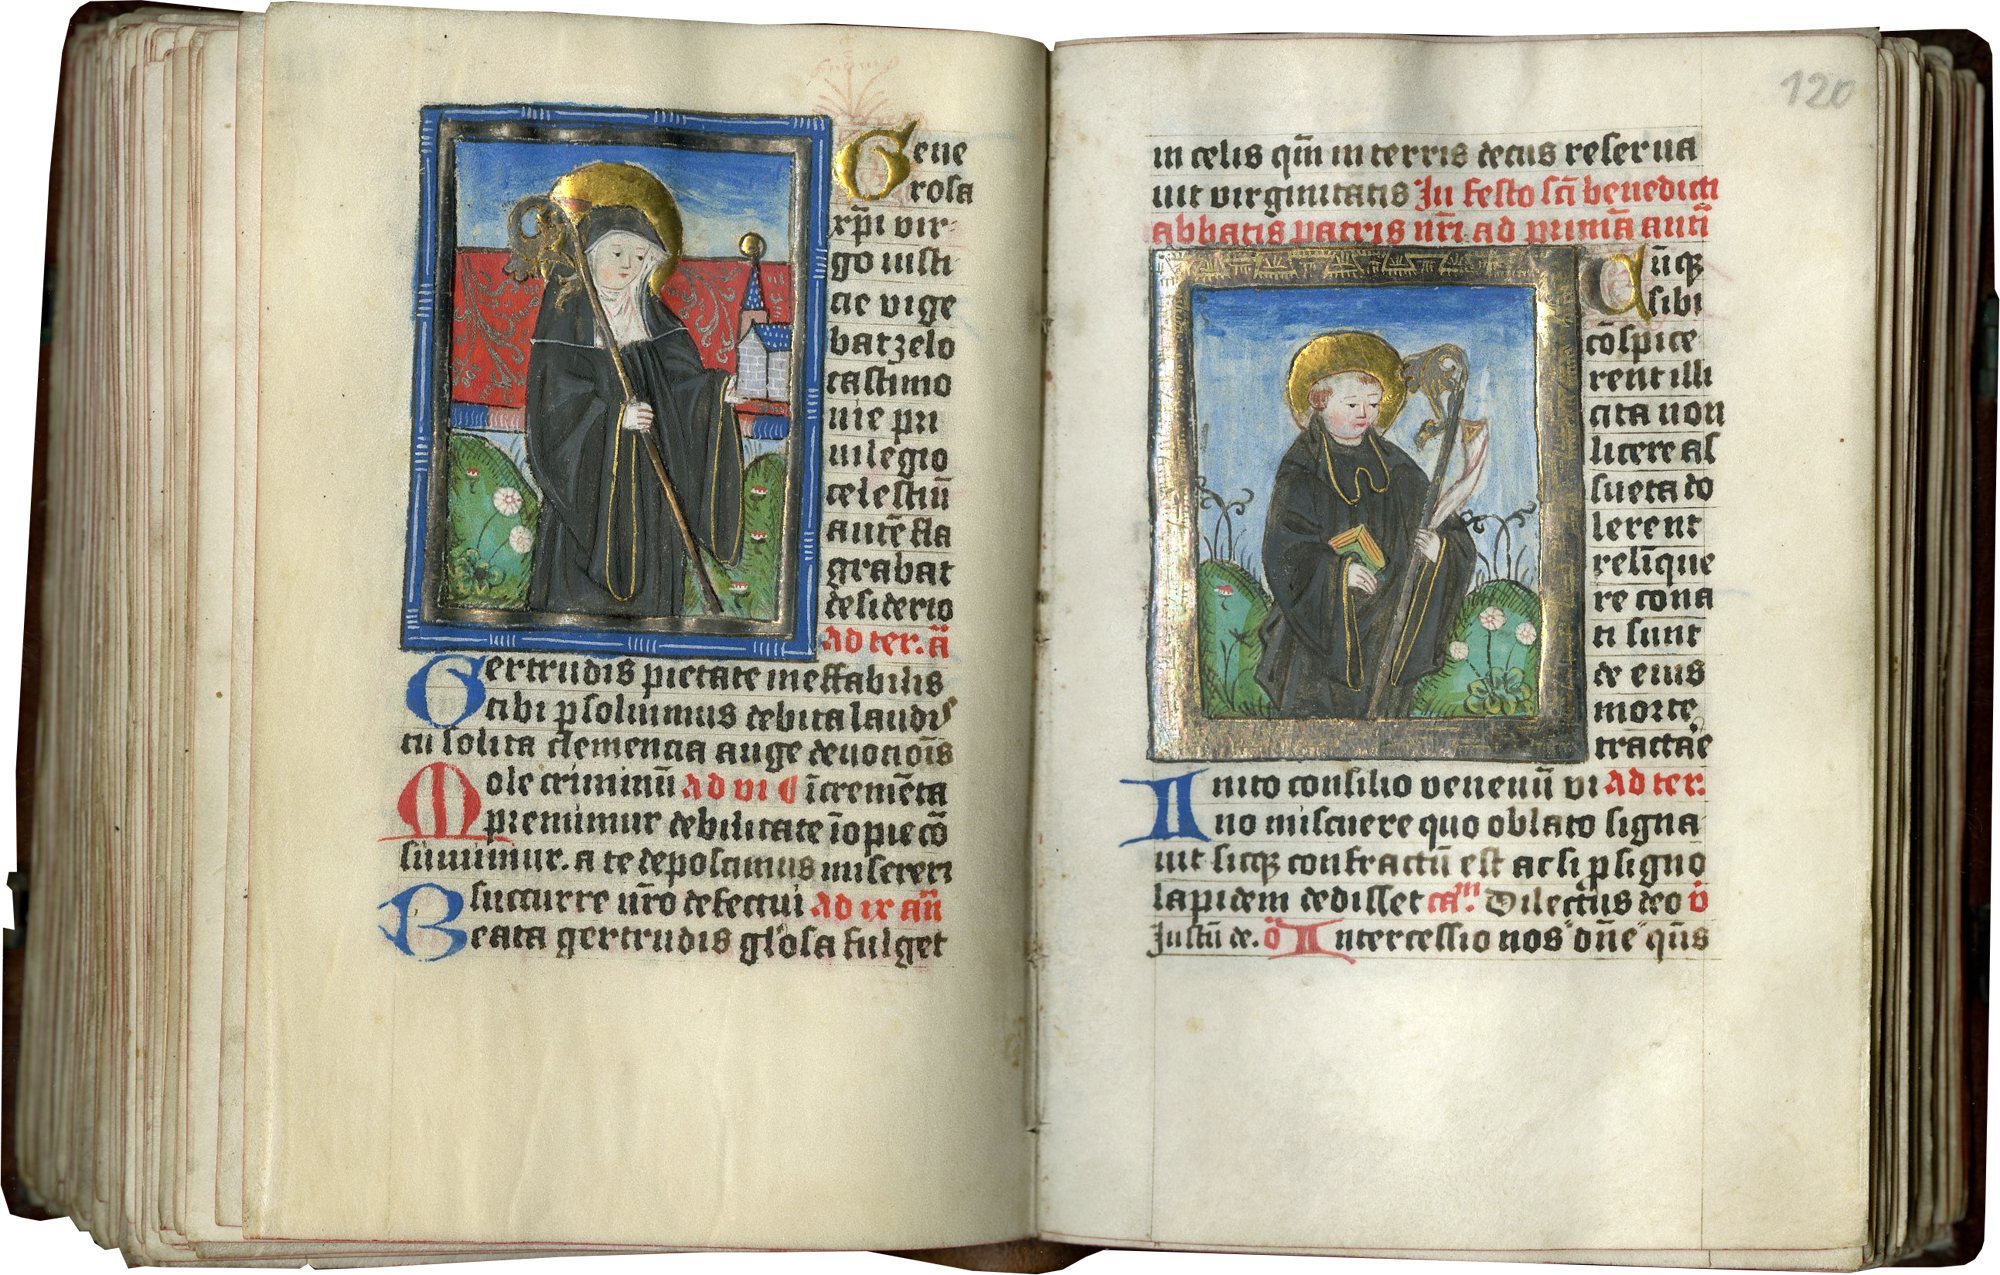 Gene
rosa
xp̄i vir-
go iusti
cie vige
bat zelo
castimo
nie pri
uilegio
celestiū
autē fla
grabat
desiderio
ad ter. ā
Gertrudis pietate ineffabilis
tibi psoluimus debita laudis
tu solita clemencia auge deuocōis
Mole criminū ad vi īcremēta
premimur debilitate īopie cō
sumimur. a te deposcimus misereri
succurre nr̄o defectui ad ix an̄
Beata gertrudis gl'osa fulget
120
in celis qm̄ in terris decus reserua
uit virginitatis In festo sc̄i benedicti
abbatis patris nr̄i ad primā antī
Cūqꝫ
sibi
cōspice
rent illi
cita non
licere as
sueta do
lerent
relīque
re cona
ti sunt
de eius
morte
tractāe
Inito consilio venenū vi ad ter.
no miscuere quo oblato signa
uit sicqꝫ confractū est ac si p signo
lapidem dedisset ca.m Dilectus deo v̄
Justū de. o Intercessio nos dn̄e qūs